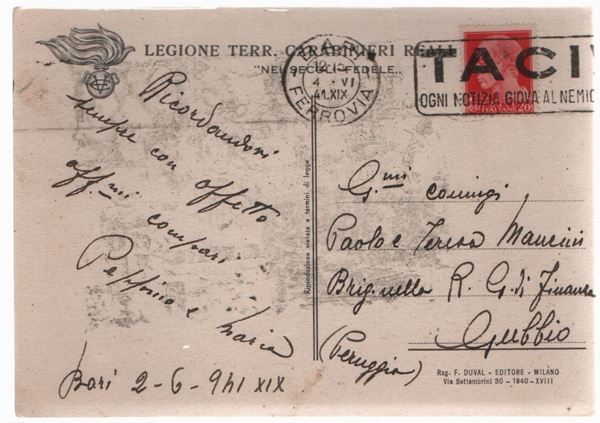 LEGIONE TERR. CARABINIERI REALI
"NEI SECOLI FEDELE"
BARI
4 - VI
41.XIX
FERROVIA
TACI
OGNI NOTIZIA GIOVA AL NEMIC
Ricordandovi
sempre con affetto
aff.mi compari
Peppino e Maria
Bari 2-6-941 XIX
Riproduzione vietata a termini di legge
G.mi coniugi
Paolo e Teresa Mancini
Brig. nella R. G. di Finanza
Gubbio
(Peruggia)
Reg. F. DUVAL - EDITORE - MILANO
Via Settembrini 30 - 1940 - XVIII